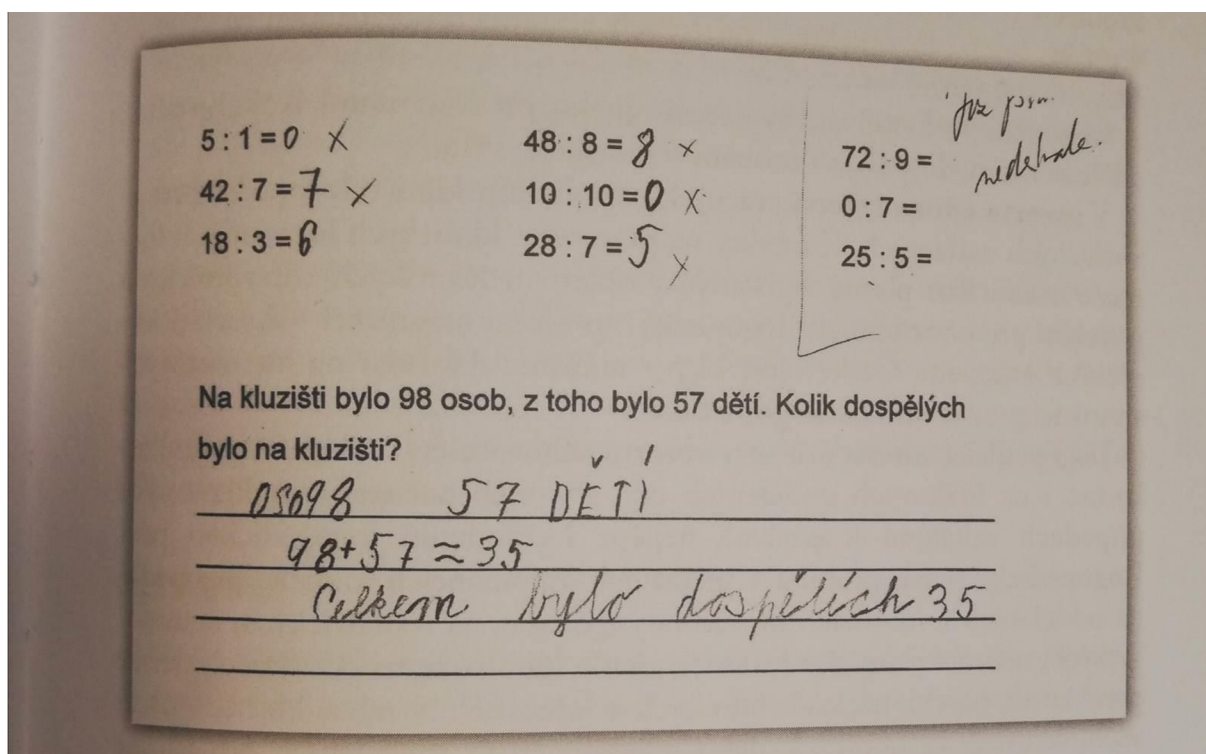 5 : 1 = 0 X
42 : 7 = 7 X
18 : 3 = 6
48 : 8 = 8 X
10 : 10 = 0 X
28 : 7 = 5 X
již jsme
nedělali.
72 : 9 =
0 : 7 =
25 : 5 =
Na kluzišti bylo 98 osob, z toho bylo 57 dětí. Kolik dospělých
bylo na kluzišti?
OSO98 57 DĚTÍ
98+57 = 35
Celkem bylo dospělích 35